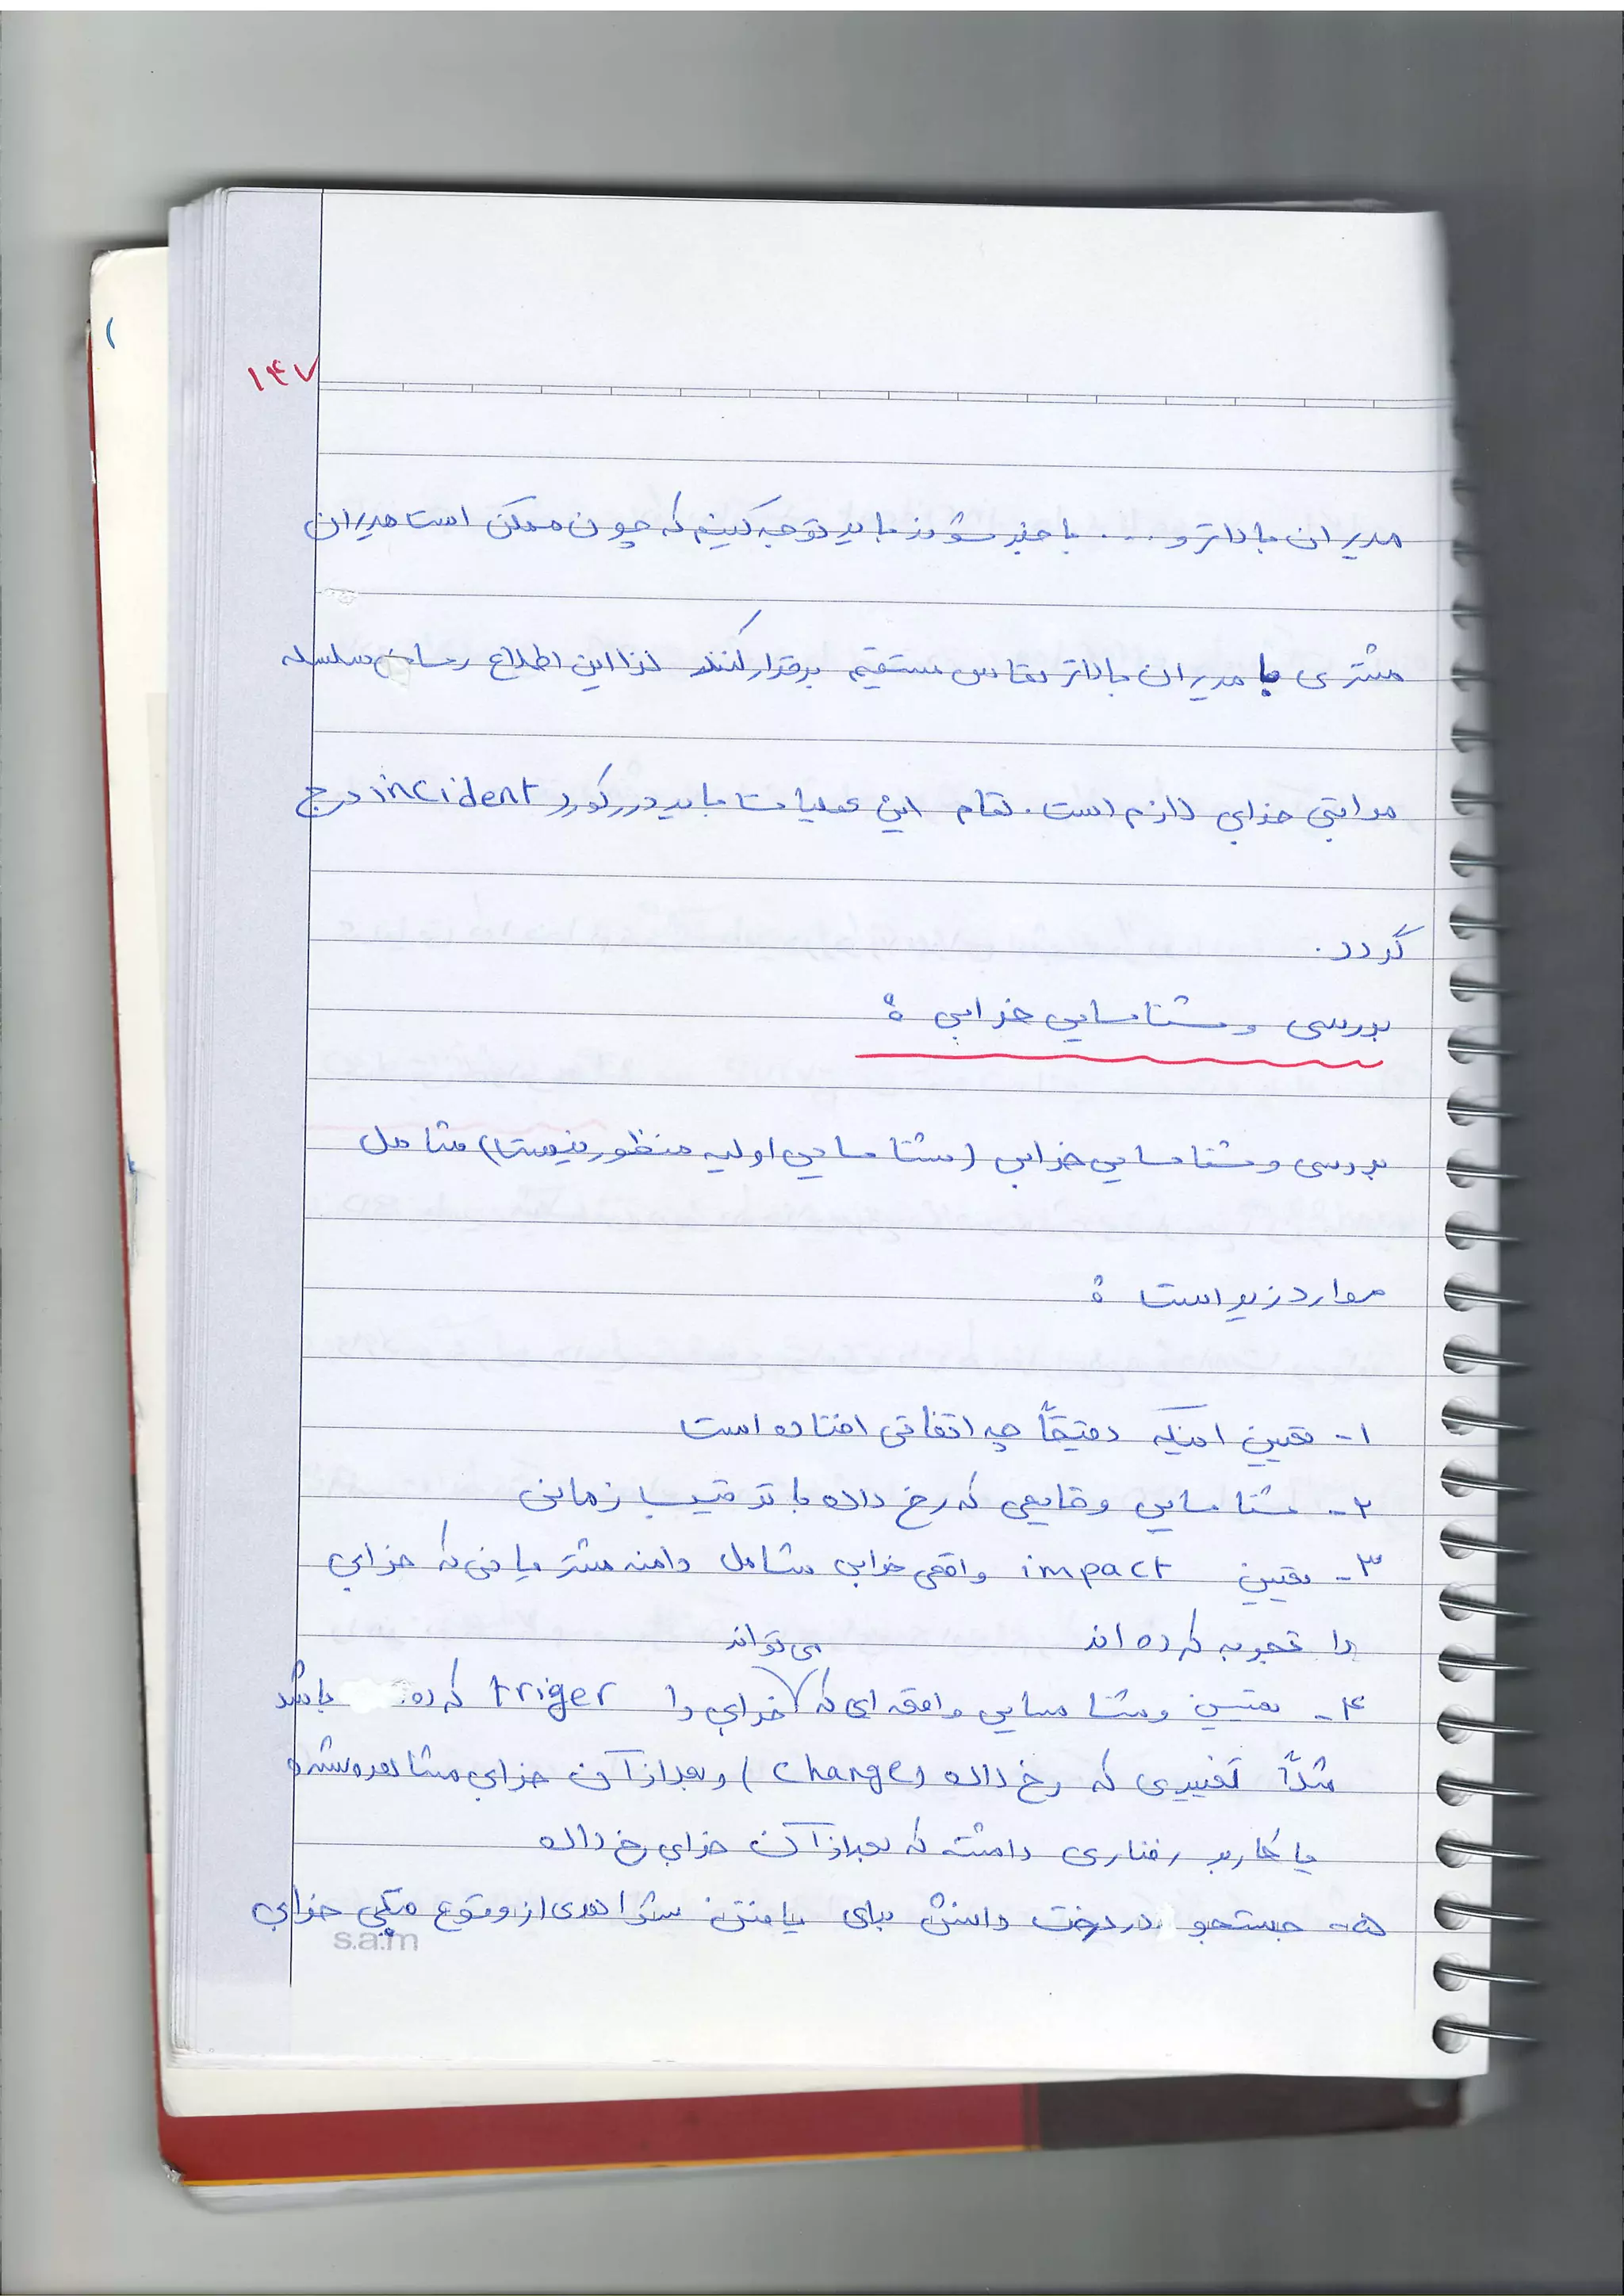 ۱۴۷
مدیران بالاتر و .... با خبر شوند باید توجه کنیم که چون ممکن است مدیران
مشتری با مدیران بالاتر تماس مستقیم برقرار کنند لذا این اطلاع رسانی سلسله
مراتبی خرابی لازم است. تمام این عملیات باید در رکورد incident درج
گردد.
بررسی و شناسایی خرابی :
بررسی و شناسایی خرابی (شناسایی اولیه منظور نیست) شامل
موارد زیر است :
۱- تعیین اینکه دقیقاً چه اتفاقی افتاده است
۲- شناسایی وقایعی که رخ داده با ترتیب زمانی
۳- تعیین impact واقعی خرابی شامل دامنه مشتریانی که خرابی
را تجربه کرده اند
۴- تعیین و شناسایی واقعه ای که می تواند خرابی را triger کرده باشد
مثلاً تغییری که رخ داده (change) و بعد از آن خرابی مشاهده شده
یا کاربر رفتاری داشته که بعد از آن خرابی رخ داده
۵- جستجو در درخت دانش برای یافتن شواهدی از وقوع قبلی خرابی
s.a.m